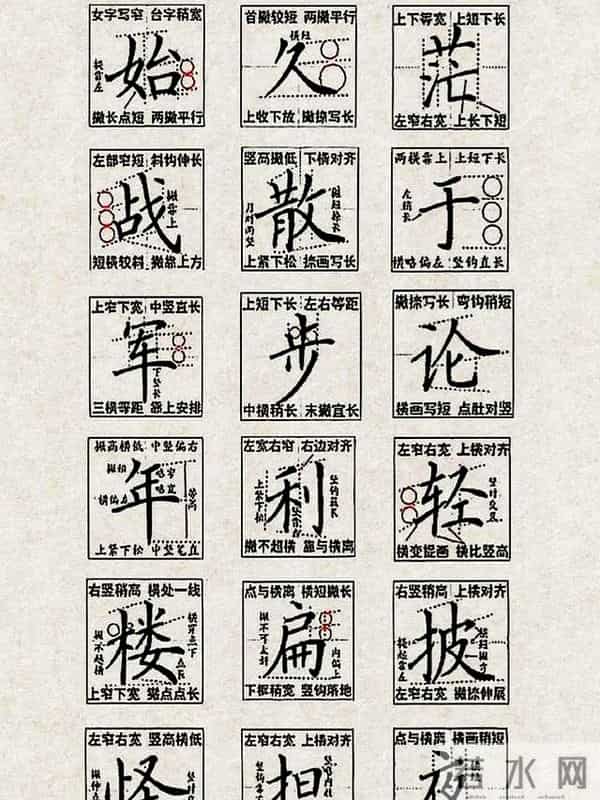 女字写窄 台字稍宽
始
提靠左
撇长点短 两撇平行
首撇较短 两撇平行
横短
久
上收下放 撇捺写长
上下等宽 上短下长
茫
左窄右宽 上长下短
左部窄短 斜钩伸长
战
撇靠上
短横较斜 撇靠上方
竖高撇低 下横对齐
散
撇短捺长
上紧下松 捺画写长
两横靠上 上短下长
左稍长
于
横略偏左 竖钩直长
上窄下宽 中竖直长
军
下竖长
三横等距 靠上安排
上短下长 左右等距
步
中横稍长 末撇宜长
撇捺写长 弯钩稍短
论
横画写短 点肚对竖
撇高横低 中竖偏右
撇短
横偏左
年
等高
上紧下松 中竖笔直
左宽右窄 右边对齐
上紧下松
利
竖钩最长
撇不超横 靠与横离
左窄右宽 上横对齐
轻
横变提画 横比竖高
右竖稍高 横处一线
撇不超横
楼
横穿点下
点长
上窄下宽 撇点点长
点与横离 横短撇长
扁
内偏上
下框稍宽 竖钩落地
右竖稍高 上横对齐
提起靠左
披
左窄右宽 撇捺伸展
左窄右宽 竖高横低
怪
左窄右宽 上横对齐
担
点与横离 横画稍短
初
若水网